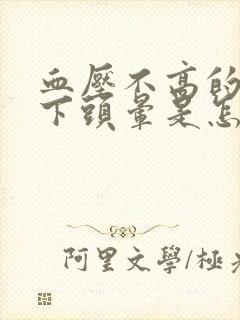 血壓不高的
下頭暈是怎
阿里文學/極光